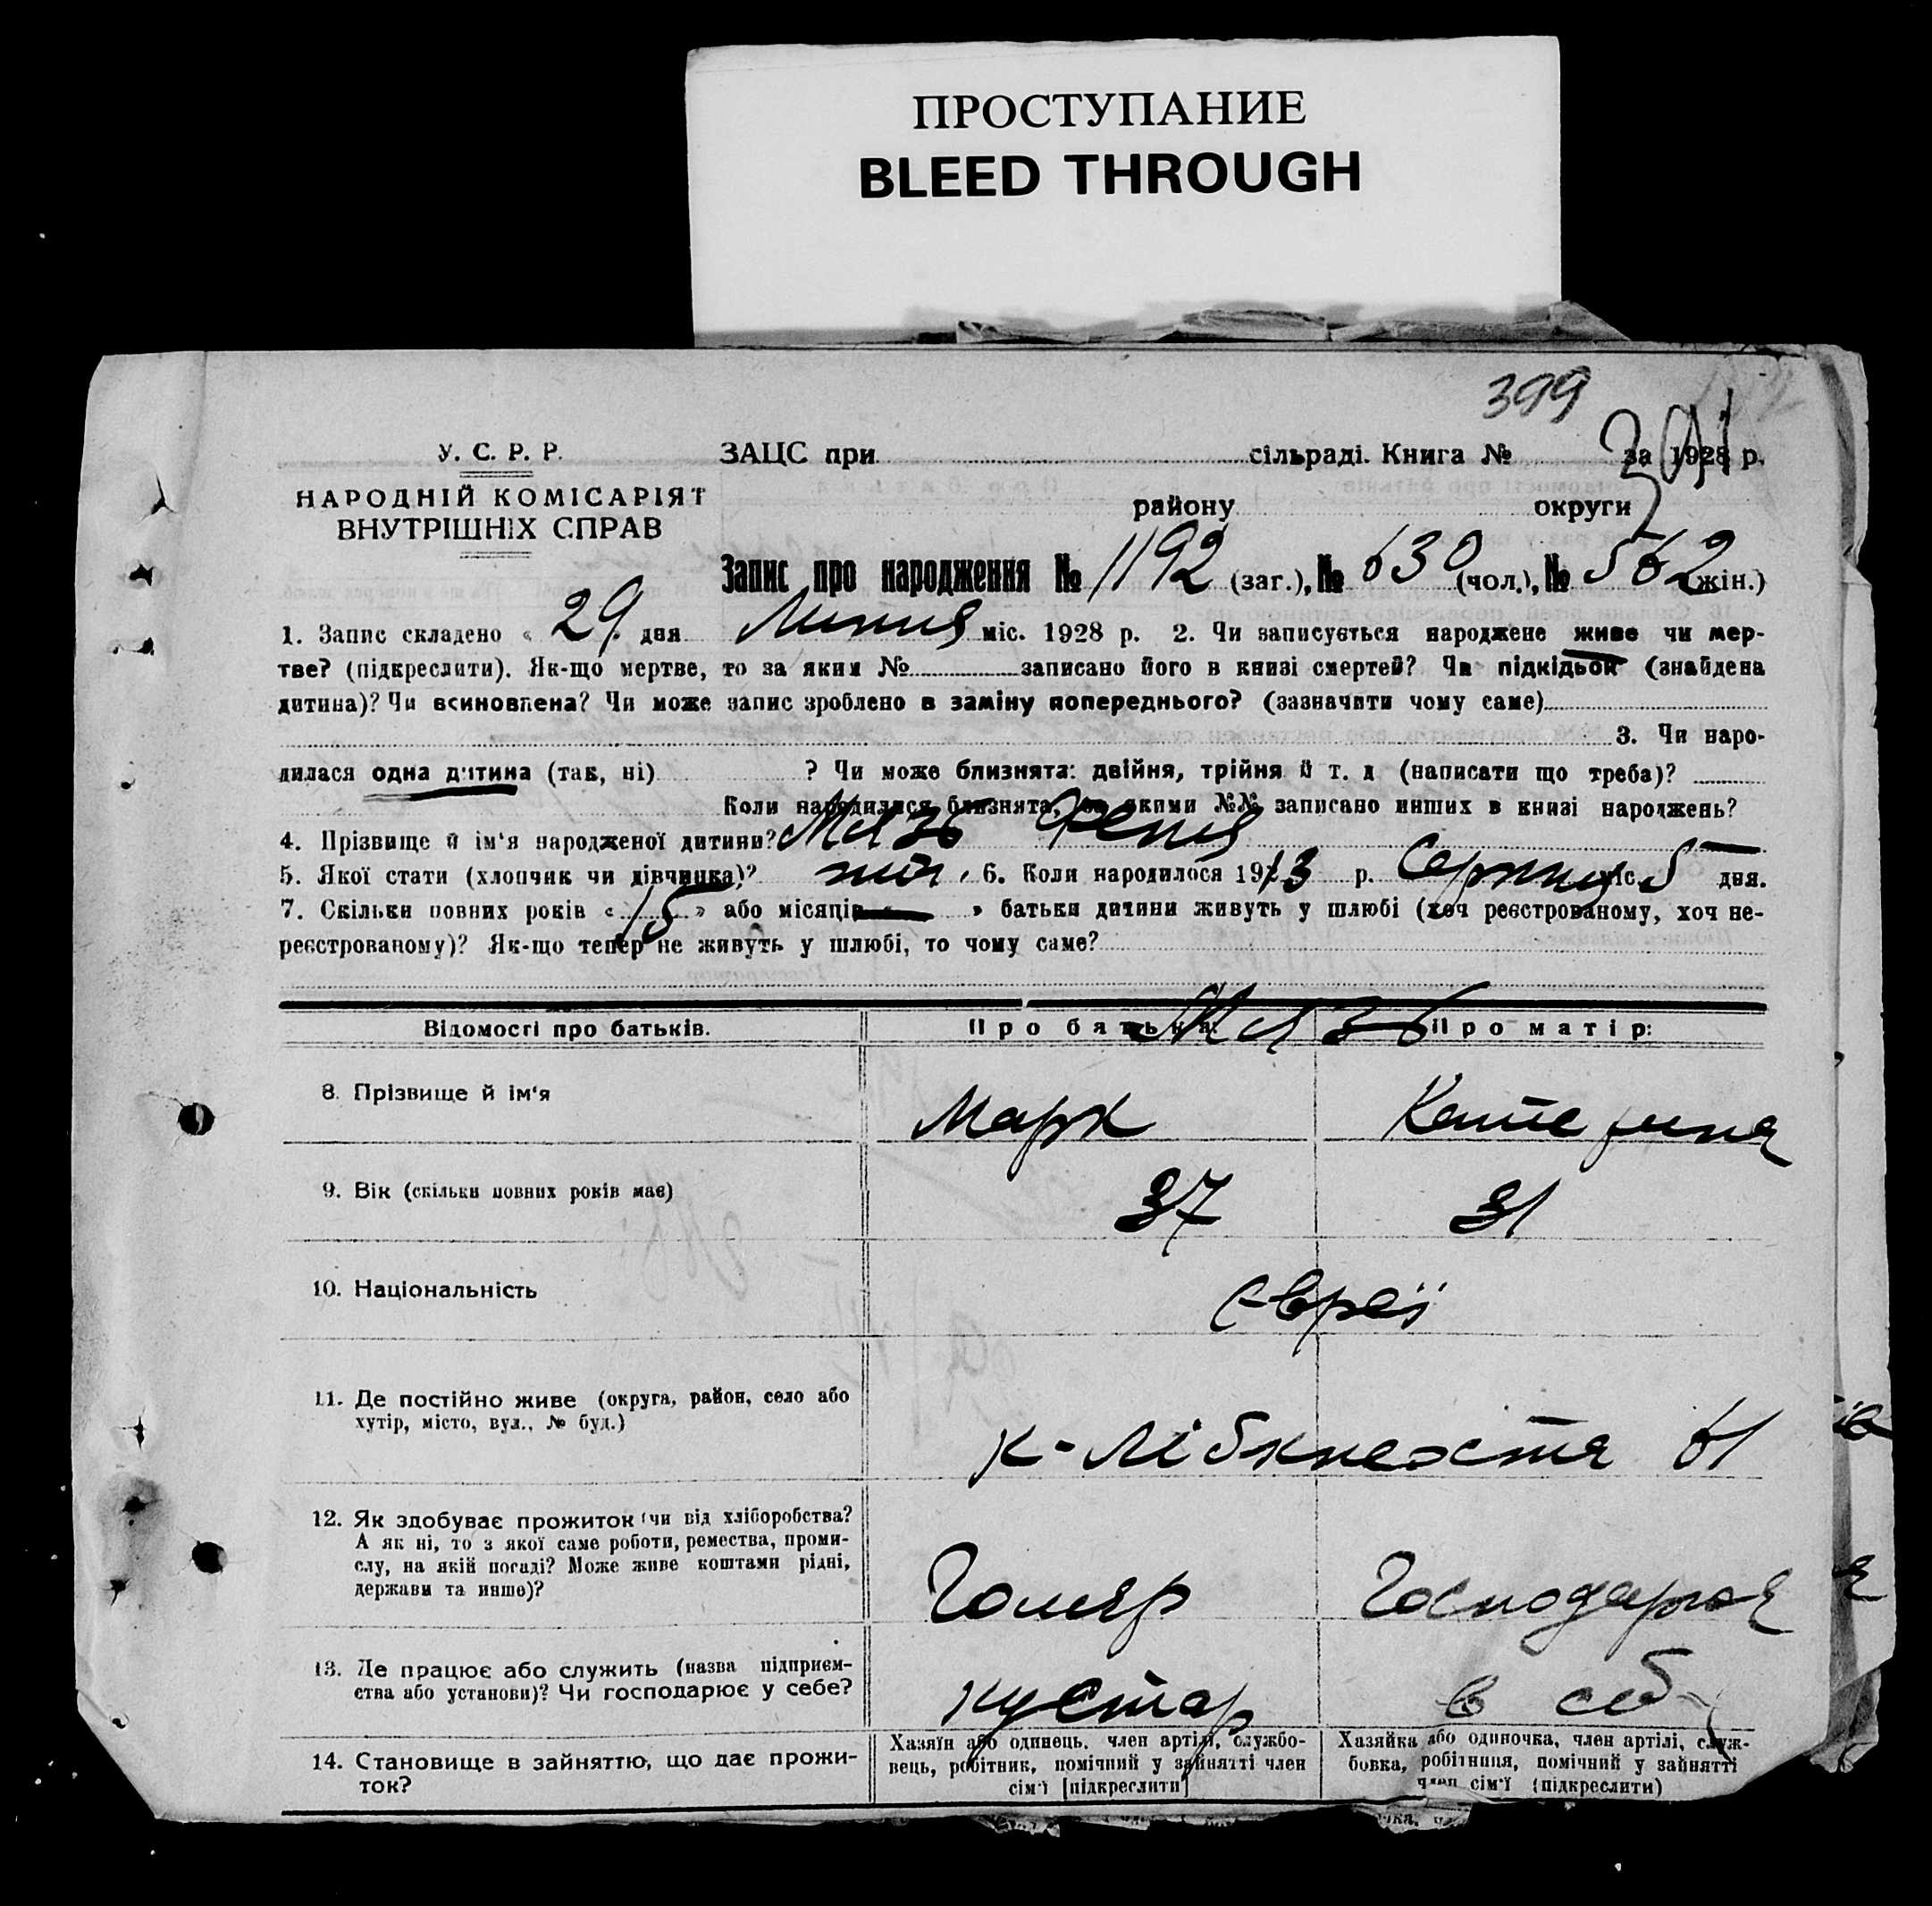 ПРОСТУПАНИЕ
BLEED THROUGH
399
У. С. Р. Р.
НАРОДНІЙ КОМІСАРІЯТ
ВНУТРІШНІХ СПРАВ
ЗАЦС при сільраді. Книга № за 1928 р.
району округи
Запис про народження № 1192 (заг.), № 630 (чол.), № 562 (жін.)
1. Запис складено « 29 » дня Липня міс. 1928 р. 2. Чи записується народжене живе чи мер-
тве? (підкреслити). Як-що мертве, то за яким № записано його в книзі смертей? Чи підкідьок (знайдена
дитина)? Чи всиновлена? Чи може запис зроблено в заміну попереднього? (зазначити чому саме)
3. Чи наро-
дилася одна дитина (так, ні) ? Чи може близнята: двійня, трійня й т. д (написати що треба)?
Коли народилися близнята, за якими №№ записано инших в книзі народжень?
4. Прізвище й ім'я народженої дитини? Мязь Феня
5. Якої стати (хлопчик чи дівчинка)? жін. 6. Коли народилося 1913 р. Серпня міс. 5 дня.
7. Скільки повних років « 15 » або місяців « — » батьки дитини живуть у шлюбі (хоч реєстрованому, хоч не-
реєстрованому)? Як-що тепер не живуть у шлюбі, то чому саме?
Відомості про батьків. Про батька: Про матір:
Мязь
8. Прізвище й ім'я Марк Катерина
9. Вік (скільки повних років має) 37 31
10. Національність Євреї
11. Де постійно живе (округа, район, село або
хутір, місто, вул., № буд.) К-Лібкнехта 61
12. Як здобуває прожиток (чи від хліборобства?
А як ні, то з якої саме роботи, ремества, проми-
слу, на якій посаді? Може живе коштами рідні,
держави та инше)? Голяр Господарка
13. Де працює або служить (назва підприєм-
ства або установи)? Чи господарює у себе? кустар в себе
14. Становище в зайняттю, що дає прожи-
ток?
Хазяїн або одинець, член артілі, службо-
вець, робітник, помічний у зайнятті член
сім'ї [підкреслити]
Хазяйка або одиночка, член артілі, служ-
бовка, робітниця, помічний у зайнятті
член сім'ї (підкреслити)